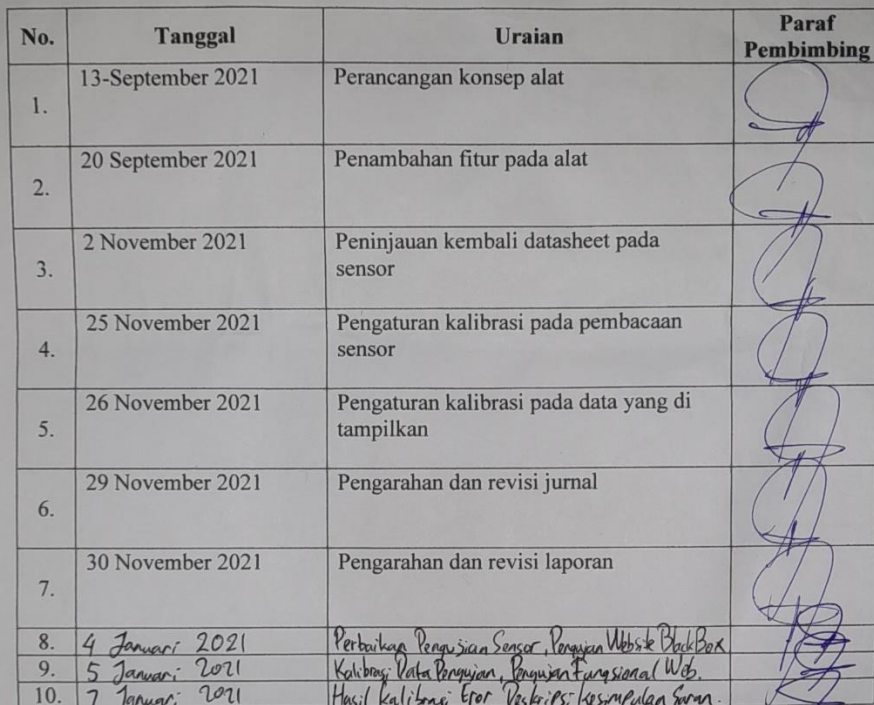 No. Tanggal Uraian Paraf Pembimbing
1. 13-September 2021 Perancangan konsep alat
2. 20 September 2021 Penambahan fitur pada alat
3. 2 November 2021 Peninjauan kembali datasheet pada
sensor
4. 25 November 2021 Pengaturan kalibrasi pada pembacaan
sensor
5. 26 November 2021 Pengaturan kalibrasi pada data yang di
tampilkan
6. 29 November 2021 Pengarahan dan revisi jurnal
7. 30 November 2021 Pengarahan dan revisi laporan
8. 4 Januari 2021 Perbaikan Sensor, Website BlackBox
9. 5 Januari 2021 Kalibrasi Data Pengujian, Pengujian Fungsional Web.
10. 7 Januari 2021 Hasil Kalibrasi Eror Deskripsi Kesimpulan Saran.